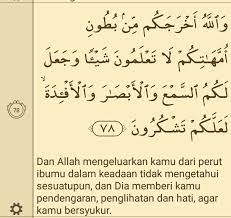 وَاللَّهُ أَخْرَجَكُم مِّنۢ بُطُونِ
أُمَّهَـٰتِكُمْ لَا تَعْلَمُونَ شَيْـًٔا وَجَعَلَ
لَكُمُ السَّمْعَ وَالْأَبْصَـٰرَ وَالْأَفْـِٔدَةَ ۙ
78
لَعَلَّكُمْ تَشْكُرُونَ ‎﴿٧٨﴾
Dan Allah mengeluarkan kamu dari perut
ibumu dalam keadaan tidak mengetahui
sesuatupun, dan Dia memberi kamu
pendengaran, penglihatan dan hati, agar
kamu bersyukur.